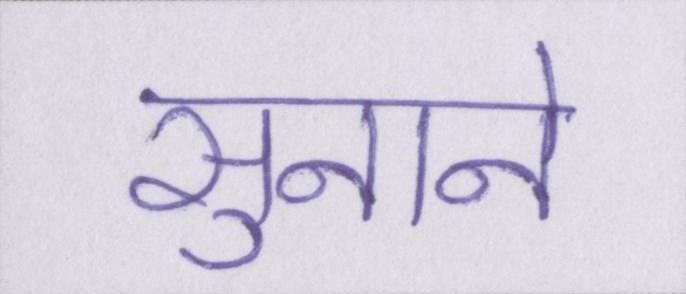 सुनाने